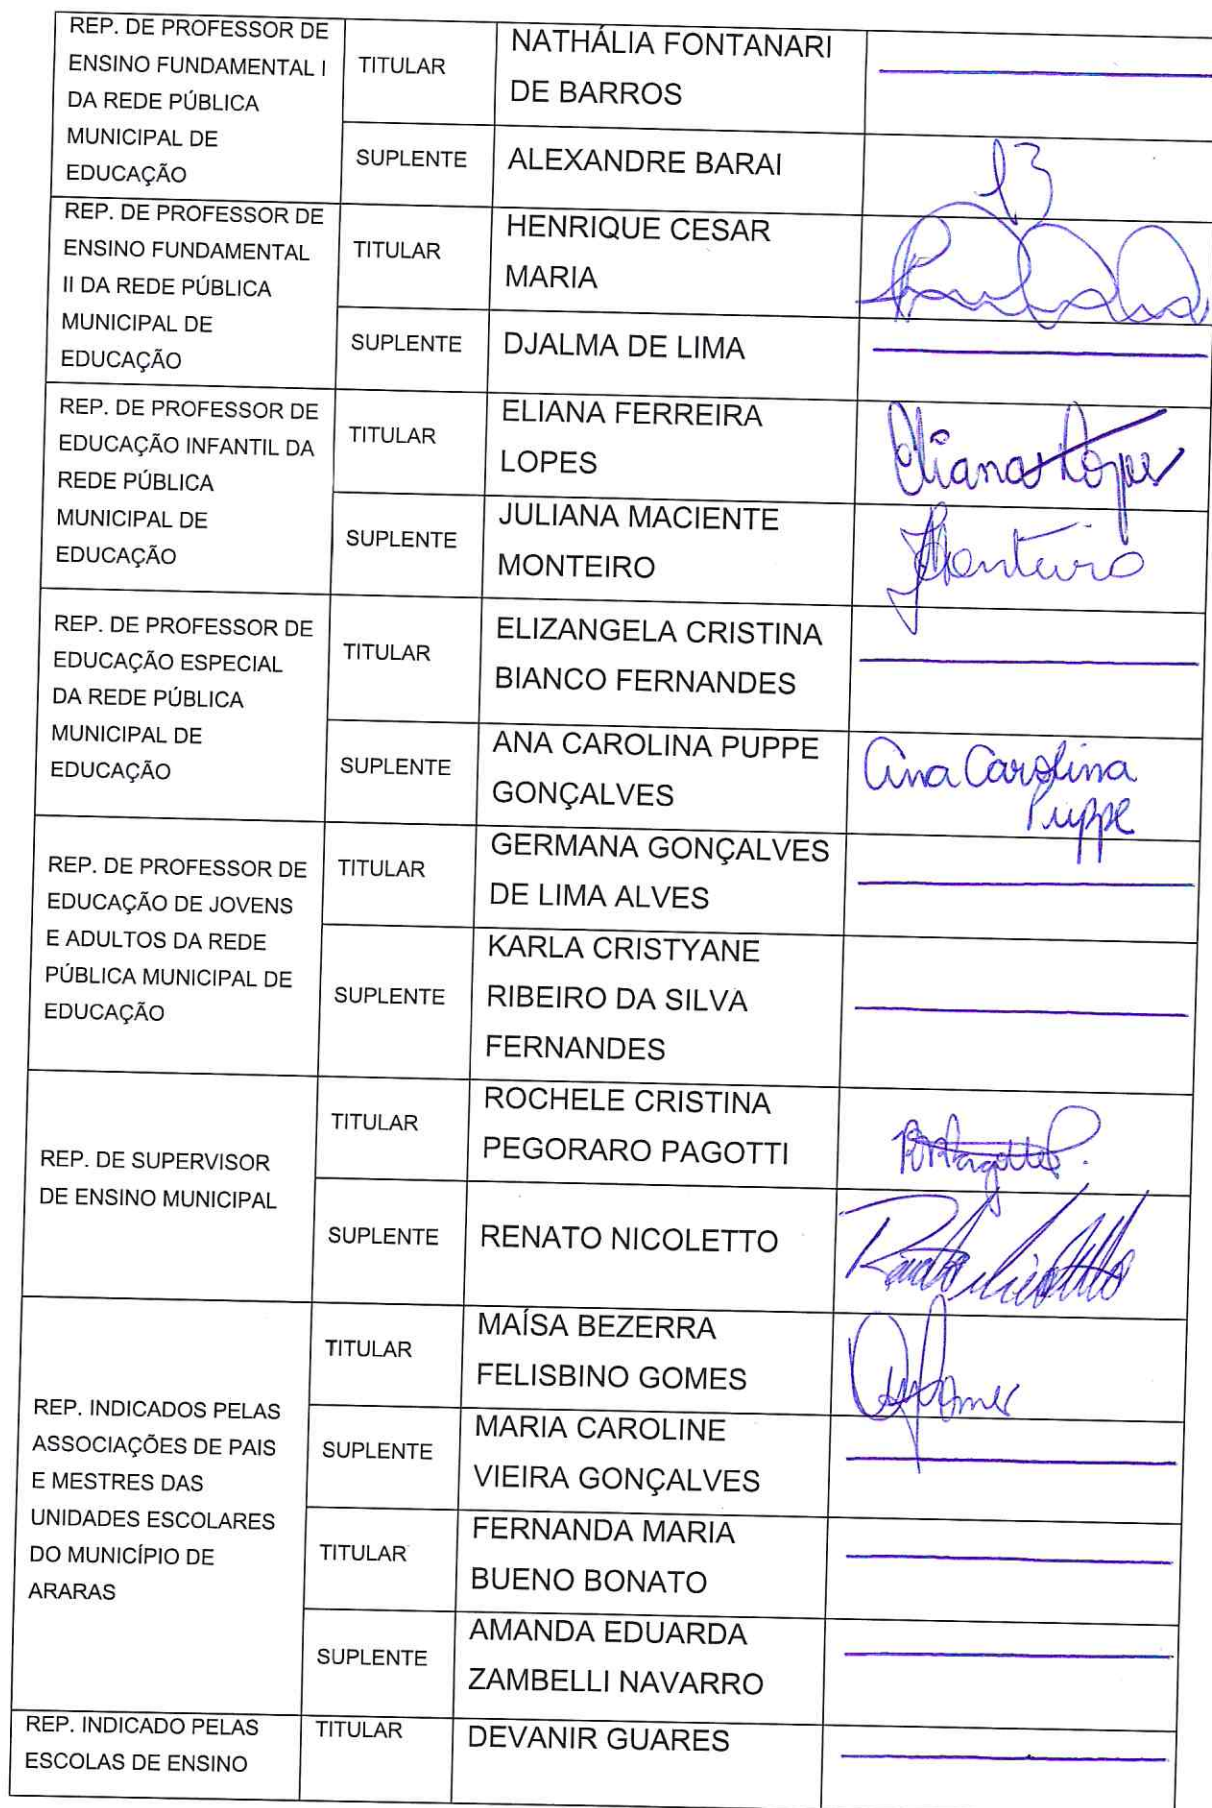 REP. DE PROFESSOR DE
ENSINO FUNDAMENTAL I
DA REDE PÚBLICA
MUNICIPAL DE
EDUCAÇÃO
TITULAR
NATHÁLIA FONTANARI
DE BARROS
SUPLENTE
ALEXANDRE BARAI
REP. DE PROFESSOR DE
ENSINO FUNDAMENTAL
II DA REDE PÚBLICA
MUNICIPAL DE
EDUCAÇÃO
TITULAR
HENRIQUE CESAR
MARIA
SUPLENTE
DJALMA DE LIMA
REP. DE PROFESSOR DE
EDUCAÇÃO INFANTIL DA
REDE PÚBLICA
MUNICIPAL DE
EDUCAÇÃO
TITULAR
ELIANA FERREIRA
LOPES
Eliana Lopes
SUPLENTE
JULIANA MACIENTE
MONTEIRO
JMonteiro
REP. DE PROFESSOR DE
EDUCAÇÃO ESPECIAL
DA REDE PÚBLICA
MUNICIPAL DE
EDUCAÇÃO
TITULAR
ELIZANGELA CRISTINA
BIANCO FERNANDES
SUPLENTE
ANA CAROLINA PUPPE
GONÇALVES
Ana Carolina
Puppe
REP. DE PROFESSOR DE
EDUCAÇÃO DE JOVENS
E ADULTOS DA REDE
PÚBLICA MUNICIPAL DE
EDUCAÇÃO
TITULAR
GERMANA GONÇALVES
DE LIMA ALVES
SUPLENTE
KARLA CRISTYANE
RIBEIRO DA SILVA
FERNANDES
REP. DE SUPERVISOR
DE ENSINO MUNICIPAL
TITULAR
ROCHELE CRISTINA
PEGORARO PAGOTTI
SUPLENTE
RENATO NICOLETTO
Renato Nicoletto
REP. INDICADOS PELAS
ASSOCIAÇÕES DE PAIS
E MESTRES DAS
UNIDADES ESCOLARES
DO MUNICÍPIO DE
ARARAS
TITULAR
MAÍSA BEZERRA
FELISBINO GOMES
SUPLENTE
MARIA CAROLINE
VIEIRA GONÇALVES
TITULAR
FERNANDA MARIA
BUENO BONATO
SUPLENTE
AMANDA EDUARDA
ZAMBELLI NAVARRO
REP. INDICADO PELAS
ESCOLAS DE ENSINO
TITULAR
DEVANIR GUARES